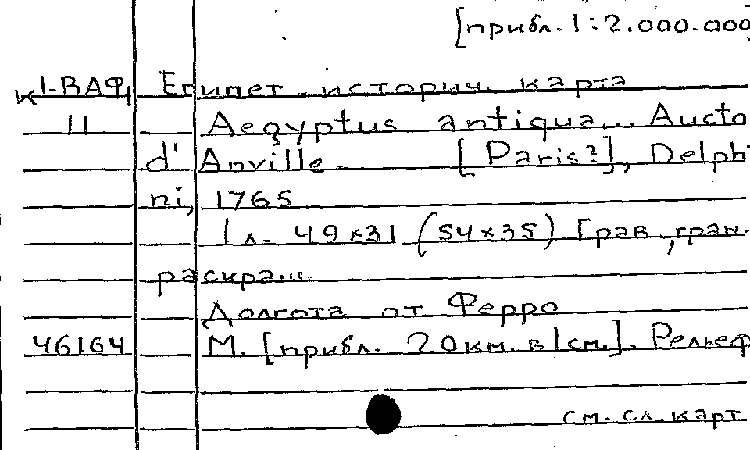 [прибл. 1:2.000.000
К1-ВАФ, Египет. историч. карта
11 Aegyptus antiqua... Aucto
d'Anville. [Paris?], Delphi
ni, 1765
1 л. 49×31 (54×35) Грав., гран.
раскраш.
Долгота от Ферро
46164 М. [прибл. 20 км. в 1 см.]. Рельеф
см. сл. карт